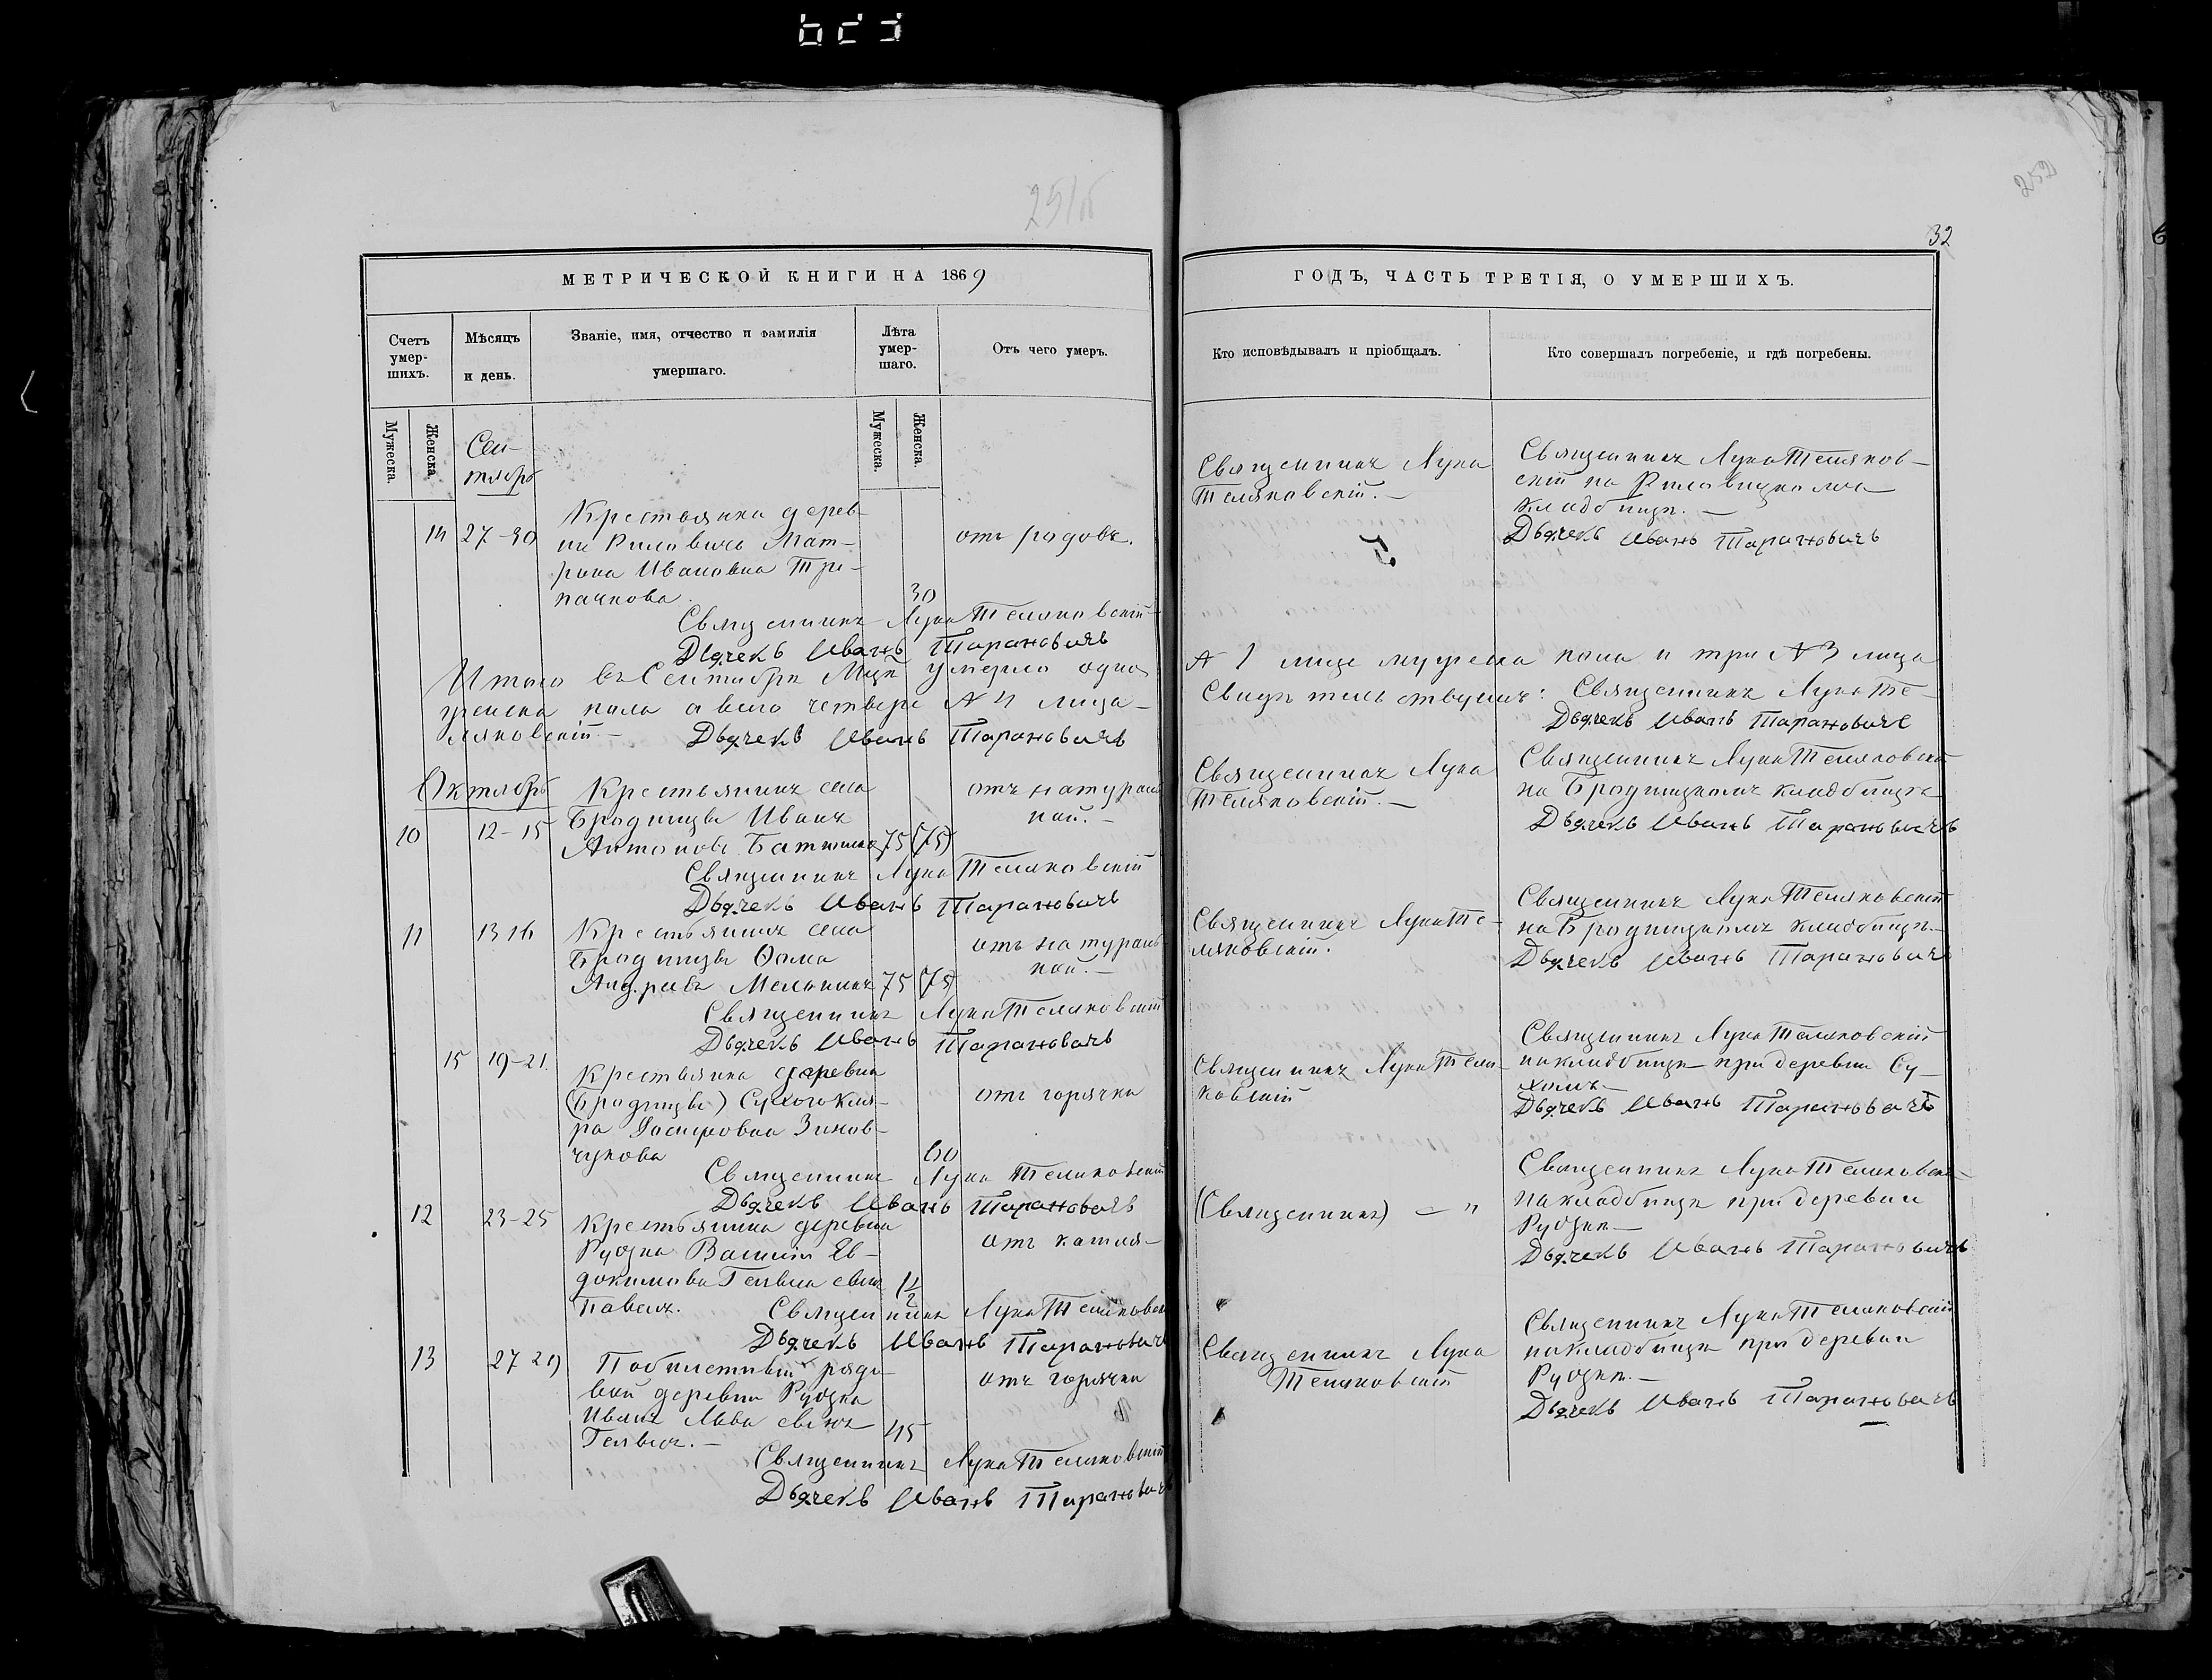 251об
252
32
МЕТРИЧЕСКОЙ КНИГИ НА 1869
Счетъ умер-шихъ.
Мѣсяцъ и день.
Званіе, имя, отчество и фамилія умершаго.
Лѣта умер-шаго.
Отъ чего умеръ.
Мужеска.
Женска.
Мужеска.
Женска.
Сен-
тябрь
Крестьянка дерев-
14 27-30
отъ родовъ.
рона Ивановна Тре-
пачкова.
30
Священникъ Лука Теляковскій
Дьячекъ Иванъ Тарановичъ
Итого въ Сентябрѣ умерло одно
женска пола а всего четверо № 4 лица
ляковскій
Дьячекъ Иванъ Тарановичъ
Октябрь
Крестьянинъ села
отъ натураль
10 12-15
Бродницы Иванъ
ной.
Антоновъ 75 (75)
Священникъ Лука Теляковскій
Дьячекъ Иванъ Тарановичъ
11 13 16
Крестьянинъ села
отъ натураль
Бродницы Ѳома
ной.
Андреевъ Мельникъ 75 (75)
Священникъ Лука Теляковскій
Дьячекъ Иванъ Тарановичъ
15 19-21.
Крестьянка деревни
(Бродницы)
отъ горячки
Зинов-
чукова
60
Священникъ Лука Теляковскій
Дьячекъ Иванъ Тарановичъ
12 23-25
Крестьянина деревни
отъ кашля
Ев-
докимова сынъ 1/2
Павелъ.
Священникъ Лука Теляковскій
Дьячекъ Иванъ Тарановичъ
13 27 29
рядо-
отъ горячки
вой деревни
Иванъ 45
Священникъ Лука Теляковскій
Дьячекъ Иванъ Тарановичъ
ГОДЪ, ЧАСТЬ ТРЕТІЯ, О УМЕРШИХЪ.
Кто исповѣдывалъ и пріобщалъ.
Кто совершалъ погребеніе, и гдѣ погребены.
Священникъ Лука
Теляковскій.
Священникъ Лука Теляков-
скій на
кладбищѣ.
Дьячекъ Иванъ Тарановичъ
№ 1 лице мужеска пола и три № 3 лица
Свидѣтельствуемъ: Священникъ Лука Те-
Дьячекъ Иванъ Тарановичъ
Священникъ Лука
Теляковскій.
Священникъ Лука Теляковскій
на Бродницкомъ кладбищѣ
Дьячекъ Иванъ Тарановичъ
Священникъ Лука Те-
ляковскій.
Священникъ Лука Теляковскій
на Бродницкомъ кладбищѣ
Дьячекъ Иванъ Тарановичъ
Священникъ Лука Теля-
ковскій
Священникъ Лука Теляковскій
на кладбищѣ при деревни Су-
хомъ
Дьячекъ Иванъ Тарановичъ
(Священникъ) — "
Священникъ Лука Теляковскій
на кладбищѣ при деревни
Дьячекъ Иванъ Тарановичъ
Священникъ Лука
Теляковскій
Священникъ Лука Теляковскій
на кладбищѣ при деревни
Дьячекъ Иванъ Тарановичъ